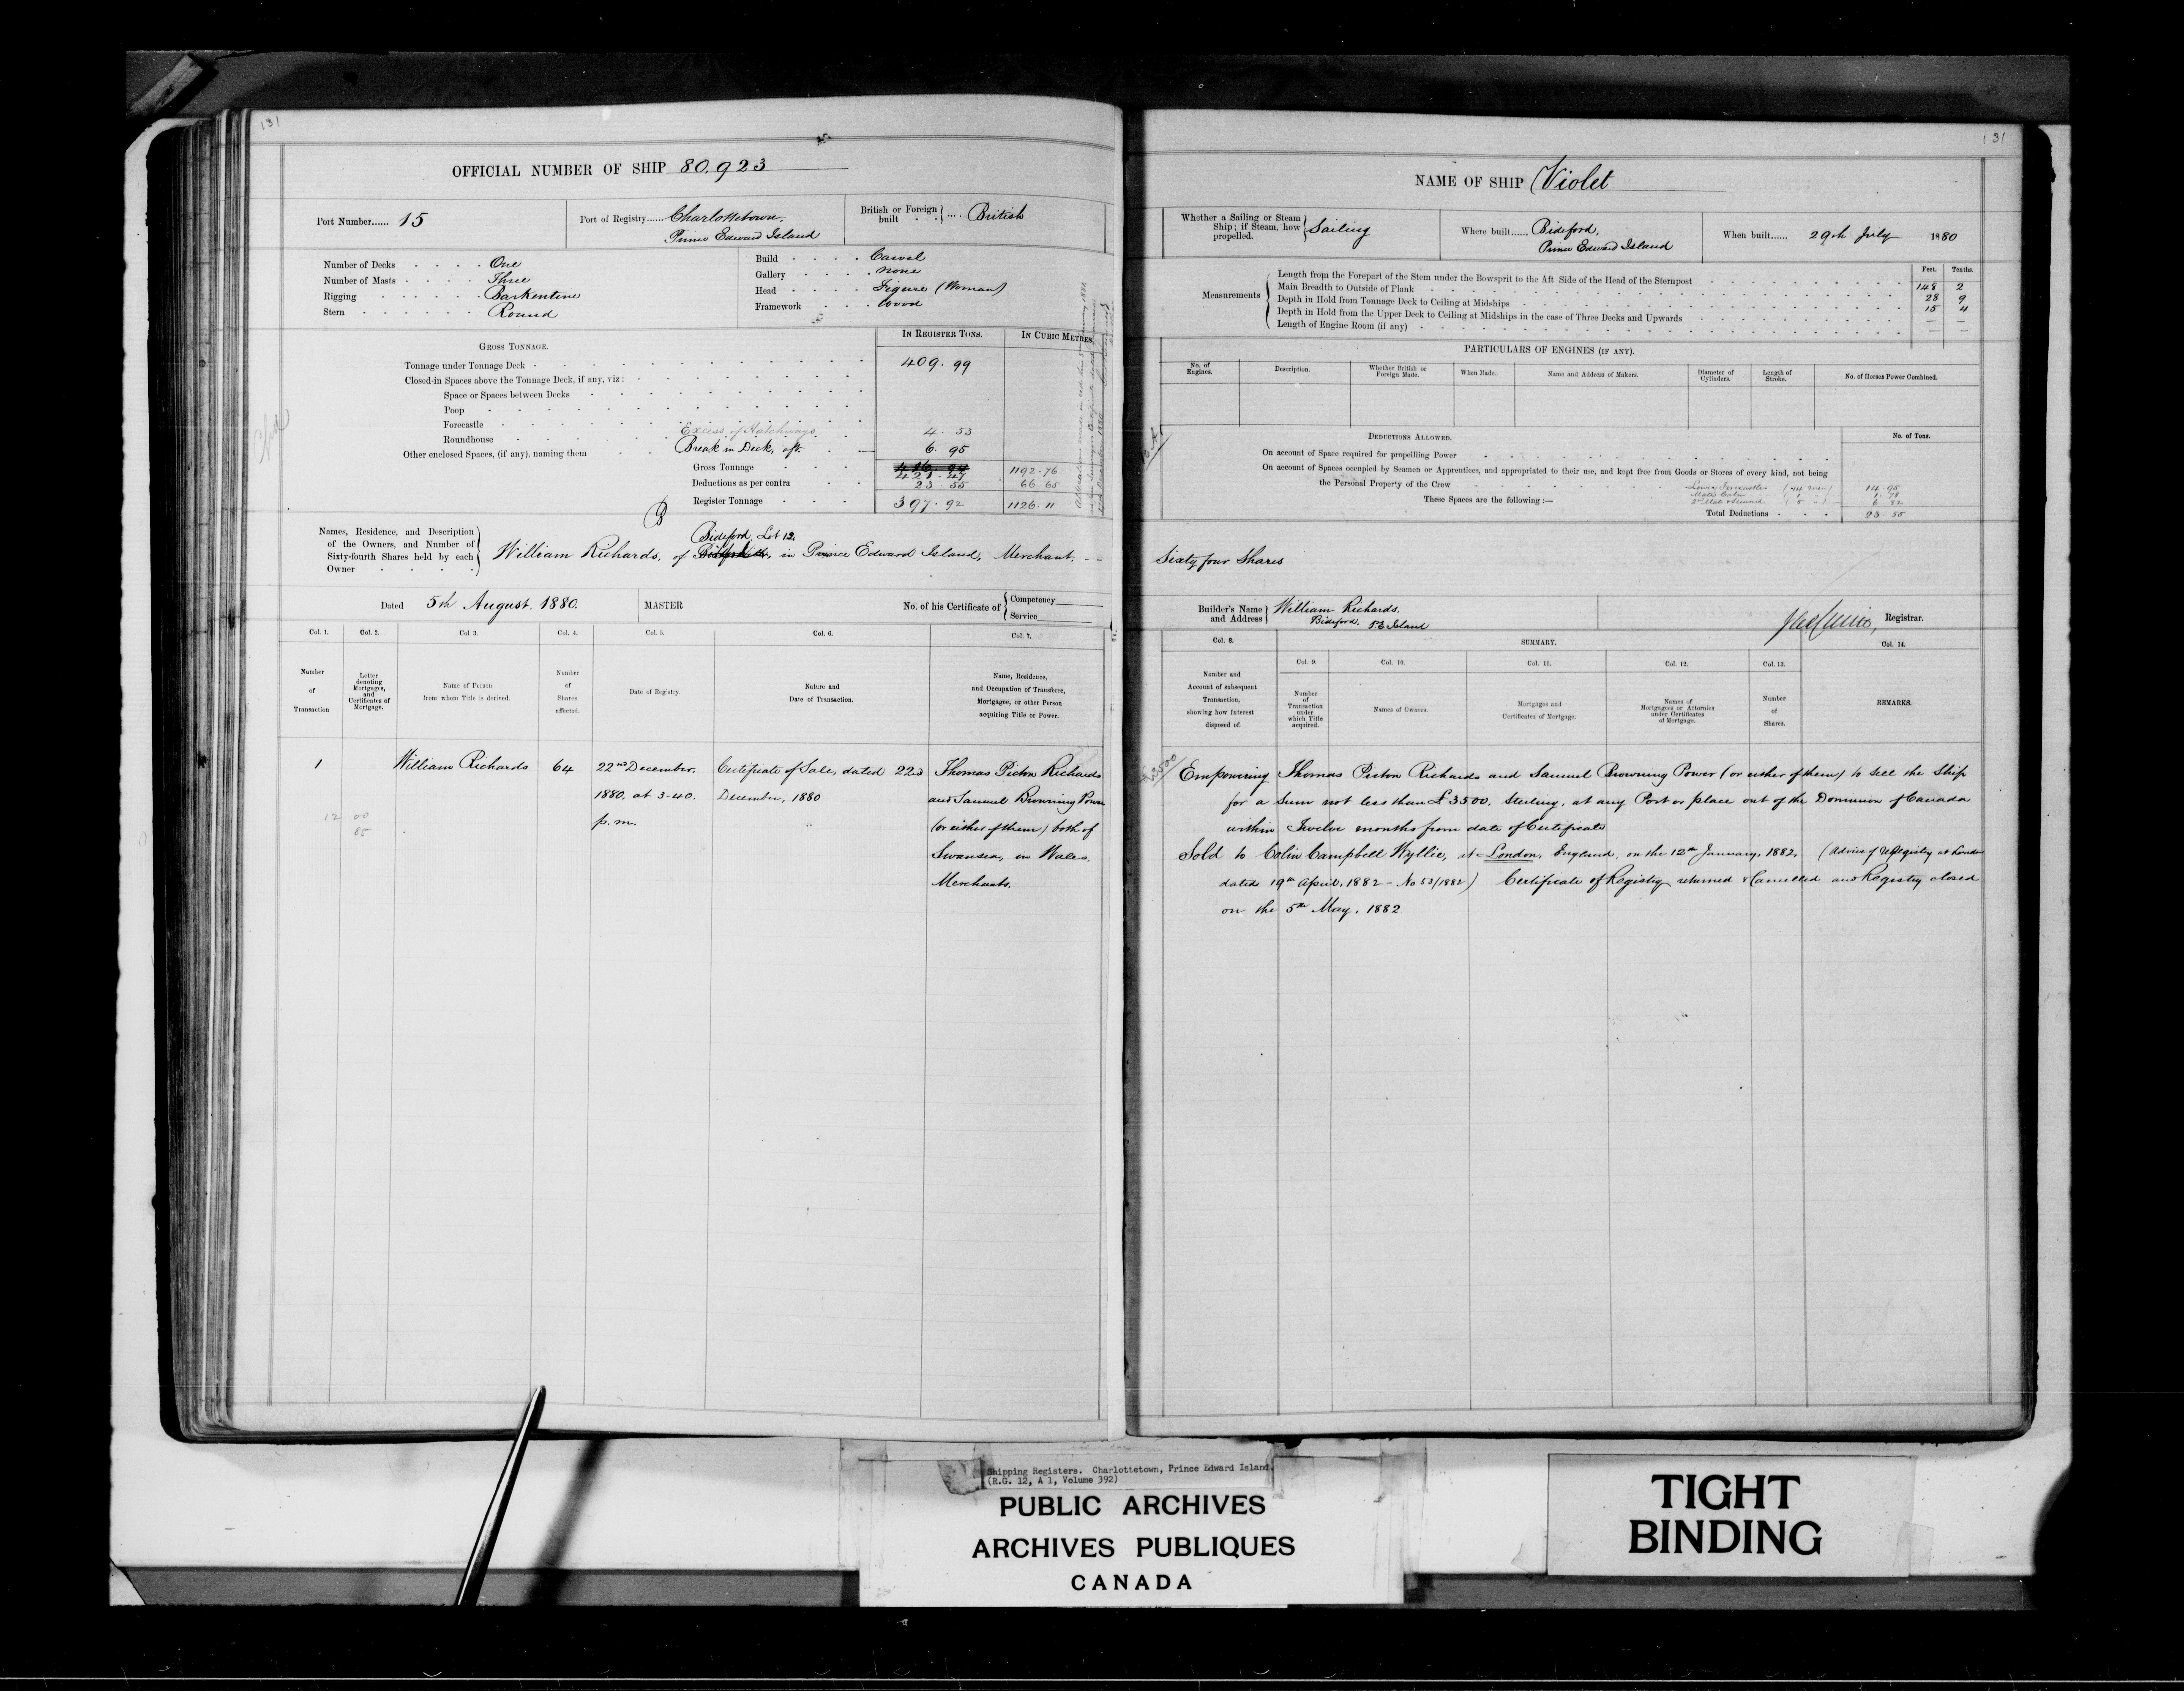 131
OFFICIAL NUMBER OF SHIP 80.923
Port Number...... 15
Port of Registry...... Charlottetown,
Prince Edward Island
British or Foreign built .... British
Number of Decks One
Number of Masts Three
Rigging Barkentine
Stern Round
Build Carvel
Gallery None
Head Figure (Woman)
Framework Wood
GROSS TONNAGE.
IN REGISTER TONS.
IN CUBIC METRES.
Tonnage under Tonnage Deck 409.99
Closed-in Spaces above the Tonnage Deck, if any, viz:
Space or Spaces between Decks
Poop
Forecastle Excess of Hatchways 4.53
Roundhouse
Other enclosed Spaces, (if any), naming them Break in Deck, aft. 6.95
Gross Tonnage 421.47 1192.76
Deductions as per contra 23.55 66.65
Register Tonnage 397.92 1126.11
Names, Residence, and Description
of the Owners, and Number of
Sixty-fourth Shares held by each
Owner
Bideford, Lot 12,
William Richards, of in Prince Edward Island, Merchant. --
Dated 5th August. 1880.
MASTER
No. of his Certificate of Competency
Service
Col. 1. Col. 2. Col. 3. Col. 4. Col. 5. Col. 6. Col. 7.
Number of Transaction
Letter denoting Mortgages, and Certificates of Mortgage.
Name of Person from whom Title is derived.
Number of Shares affected.
Date of Registry.
Nature and Date of Transaction.
Name, Residence, and Occupation of Transferee, Mortgagee, or other Person acquiring Title or Power.
1 William Richards 64 22nd December, Certificate of Sale, dated 22nd Thomas Picton Richards
1880, at 3-40. December, 1880 and Samuel Browning Power
p.m. (or either of them) both of
Swansea, in Wales.
Merchants.
12 00
85
131
NAME OF SHIP Violet
Whether a Sailing or Steam Ship; if Steam, how propelled. Sailing
Where built...... Bideford,
Prince Edward Island
When built...... 29th July 1880
Measurements
Feet. Tenths.
Length from the Forepart of the Stem under the Bowsprit to the Aft Side of the Head of the Sternpost 148 2
Main Breadth to Outside of Plank 28 9
Depth in Hold from Tonnage Deck to Ceiling at Midships 15 4
Depth in Hold from the Upper Deck to Ceiling at Midships in the case of Three Decks and Upwards — —
Length of Engine Room (if any) — —
PARTICULARS OF ENGINES (IF ANY).
No. of Engines. Description. Whether British or Foreign Made. When Made. Name and Address of Makers. Diameter of Cylinders. Length of Stroke. No. of Horses Power Combined.
DEDUCTIONS ALLOWED.
No. of Tons.
On account of Space required for propelling Power
On account of Spaces occupied by Seamen or Apprentices, and appropriated to their use, and kept free from Goods or Stores of every kind, not being
the Personal Property of the Crew
These Spaces are the following:—
14.95
1.78
6.82
Total Deductions 23.55
Sixty four Shares
Builder's Name and Address William Richards.
Bideford, P E Island
Registrar.
Col. 8. SUMMARY. Col. 14.
Col. 9. Col. 10. Col. 11. Col. 12. Col. 13.
Number and Account of subsequent Transaction, showing how Interest disposed of.
Number of Transaction under which Title acquired.
Names of Owners.
Mortgages and Certificates of Mortgage.
Names of Mortgagees or Attornies under Certificates of Mortgage.
Number of Shares.
REMARKS.
£3500
Empowering Thomas Picton Richards and Samuel Browning Power (or either of them) to sell the Ship
for a sum not less than £3500. Sterling, at any Port or place out of the Dominion of Canada
within Twelve months from date of Certificate
Sold to Colin Campbell Wyllie, at London, England, on the 12th January, 1882. (Advice of Registry at London
dated 19th April, 1882 - No 53/1882) Certificate of Registry returned & Cancelled and Registry closed
on the 5th May, 1882
Shipping Registers. Charlottetown, Prince Edward Island.
(R.G. 12, A 1, Volume 392)
PUBLIC ARCHIVES
ARCHIVES PUBLIQUES
CANADA
TIGHT
BINDING